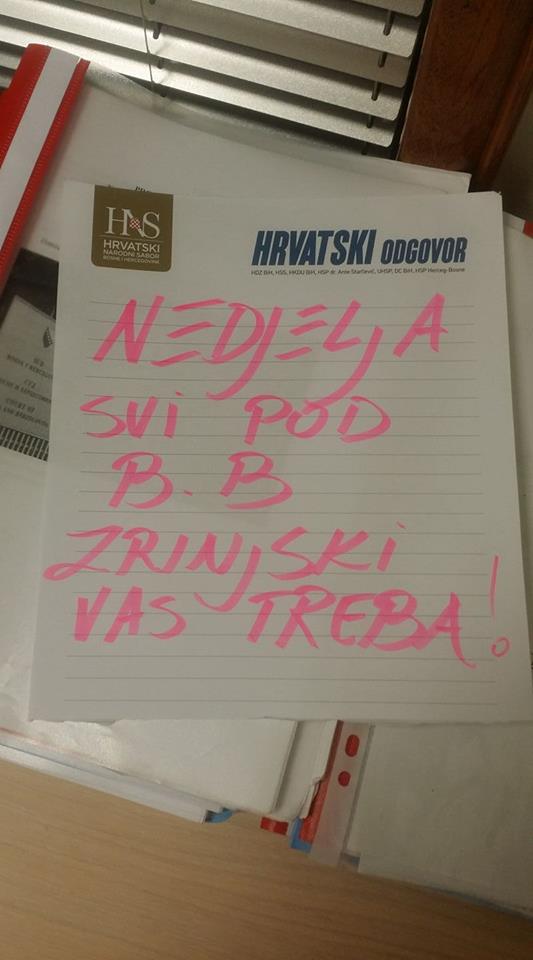 HNS
HRVATSKI
NARODNI SABOR
BOSNE I HERCEGOVINE
HRVATSKI ODGOVOR
HDZ BiH, HSS, HKDU BiH, HSP dr. Ante Starčević, UHSP, DC BiH, HSP Herceg-Bosne
NEDJELJA
SVi POD
B.B
ZRINJSKi
VAS TREBA!